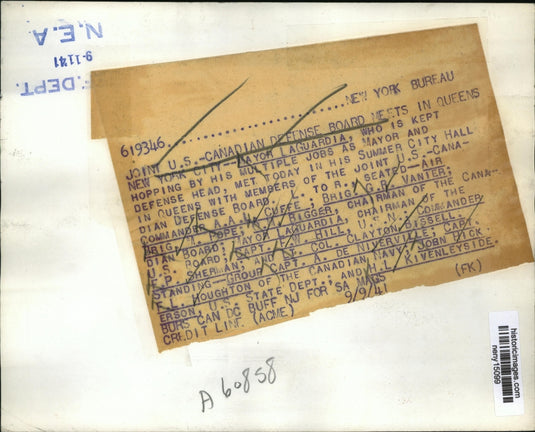 N.E.A.
9-11-41
DEPT.
NEW YORK BUREAU
619346
JOINT U.S.-CANADIAN DEFENSE BOARD MEETS IN QUEENS
NEW YORK CITY--MAYOR LAGUARDIA, WHO IS KEPT
HOPPING BY HIS MULTIPLE JOBS AS MAYOR AND
DEFENSE HEAD, MET TODAY IN HIS SUMMER CITY HALL
IN QUEENS WITH MEMBERS OF THE JOINT U.S.-CANA-
DIAN DEFENSE BOARD. L. TO R. SEATED--AIR
COMMANDER CUFFE; BRIG. G.P. VANIER;
BRIG. POPE; BIGGER, CHAIRMAN OF THE CANA-
DIAN BOARD; MAYOR LAGUARDIA, CHAIRMAN OF THE
U.S. BOARD; CAPT. HILL, U.S.N.; COMMANDER
F.P. SHERMAN; AND LT. COL. CLAYTON BISSELL.
STANDING--GROUP CAPT. A. DE NIVERVILLE; CAPT.
F.L. HOUGHTON OF THE CANADIAN NAVY; JOHN HICK-
ERSON, U.S. STATE DEPT.; AND H.L. KEENLEYSIDE.
BURS CAN DC BUFF NJ FOR SA MAGS
CREDIT LINE (ACME) 9/9/41 (FK)
A 60858
historicimages.com
nany15099